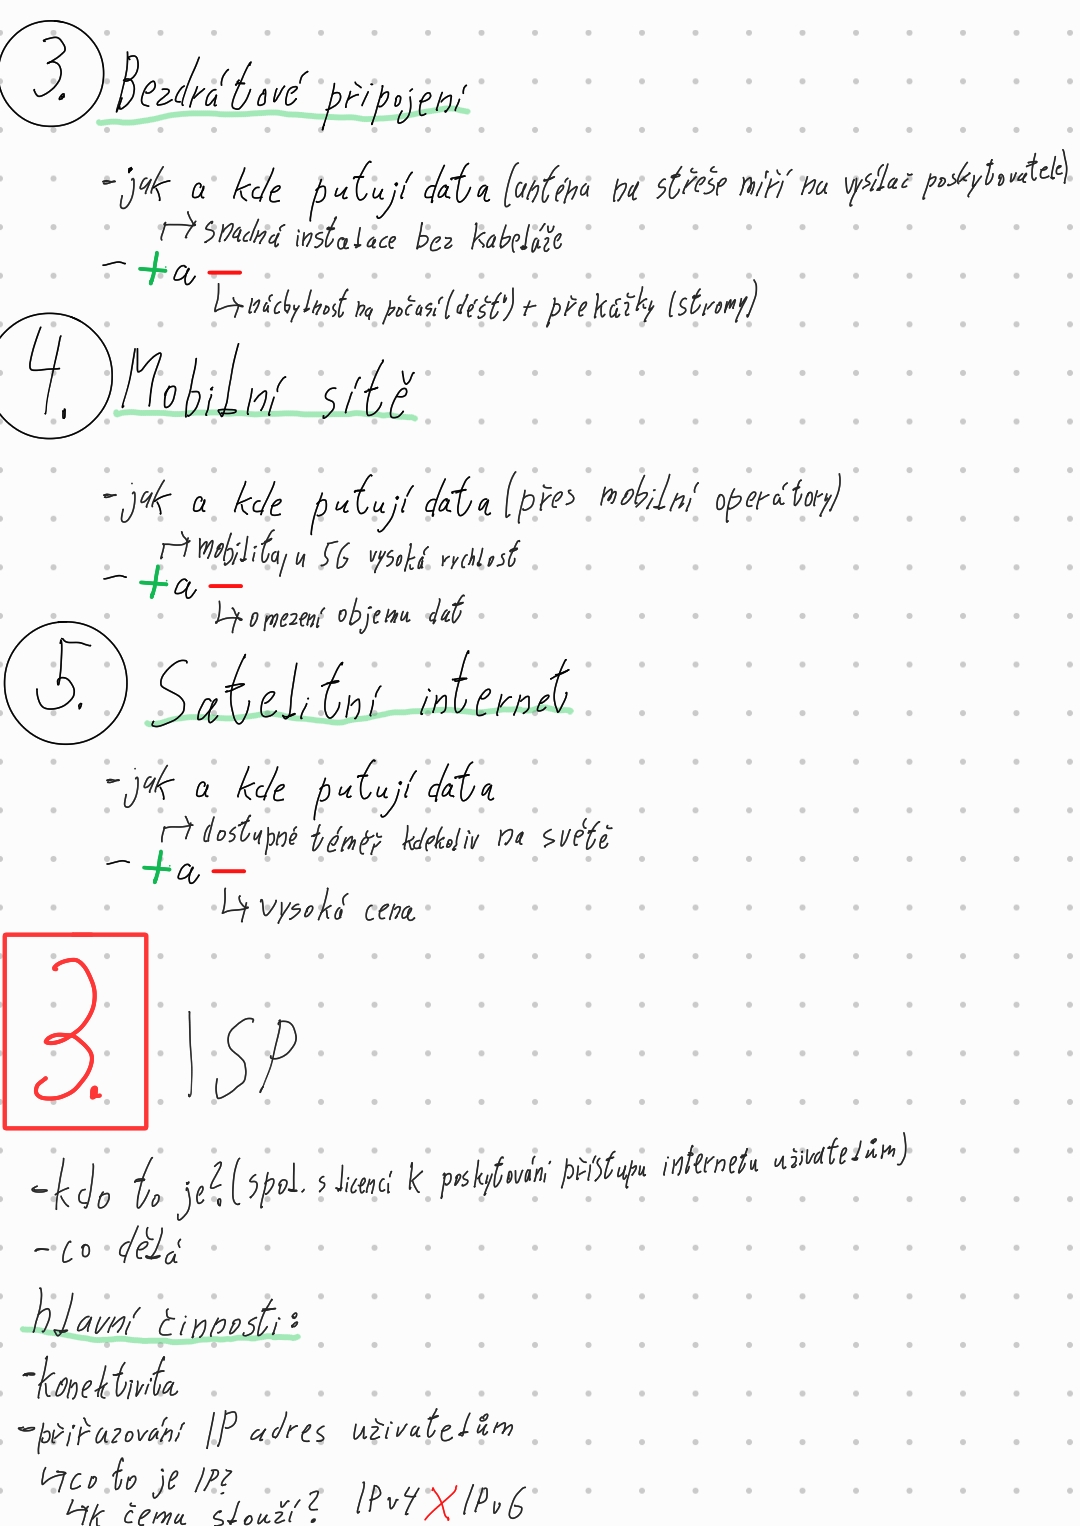 3. Bezdrátové připojení
-jak a kde putují data (anténa na střeše míří na vysílač poskytovatele)
↱ snadná instalace bez kabeláže
- + a -
↳ náchylnost na počasí (déšť) + překážky (stromy)
4. Mobilní sítě
-jak a kde putují data (přes mobilní operátory)
↱ mobilita, u 5G vysoká rychlost
- + a -
↳ omezení objemu dat
5. Satelitní internet
-jak a kde putují data
↱ dostupné téměř kdekoliv na světě
- + a -
↳ vysoká cena
3. ISP
-kdo to je? (spol. s licencí k poskytování přístupu internetu uživatelům)
-co dělá
hlavní činnosti:
-konektivita
-přiřazování IP adres uživatelům
↳ co to je IP?
↳ k čemu slouží? IPv4 X IPv6